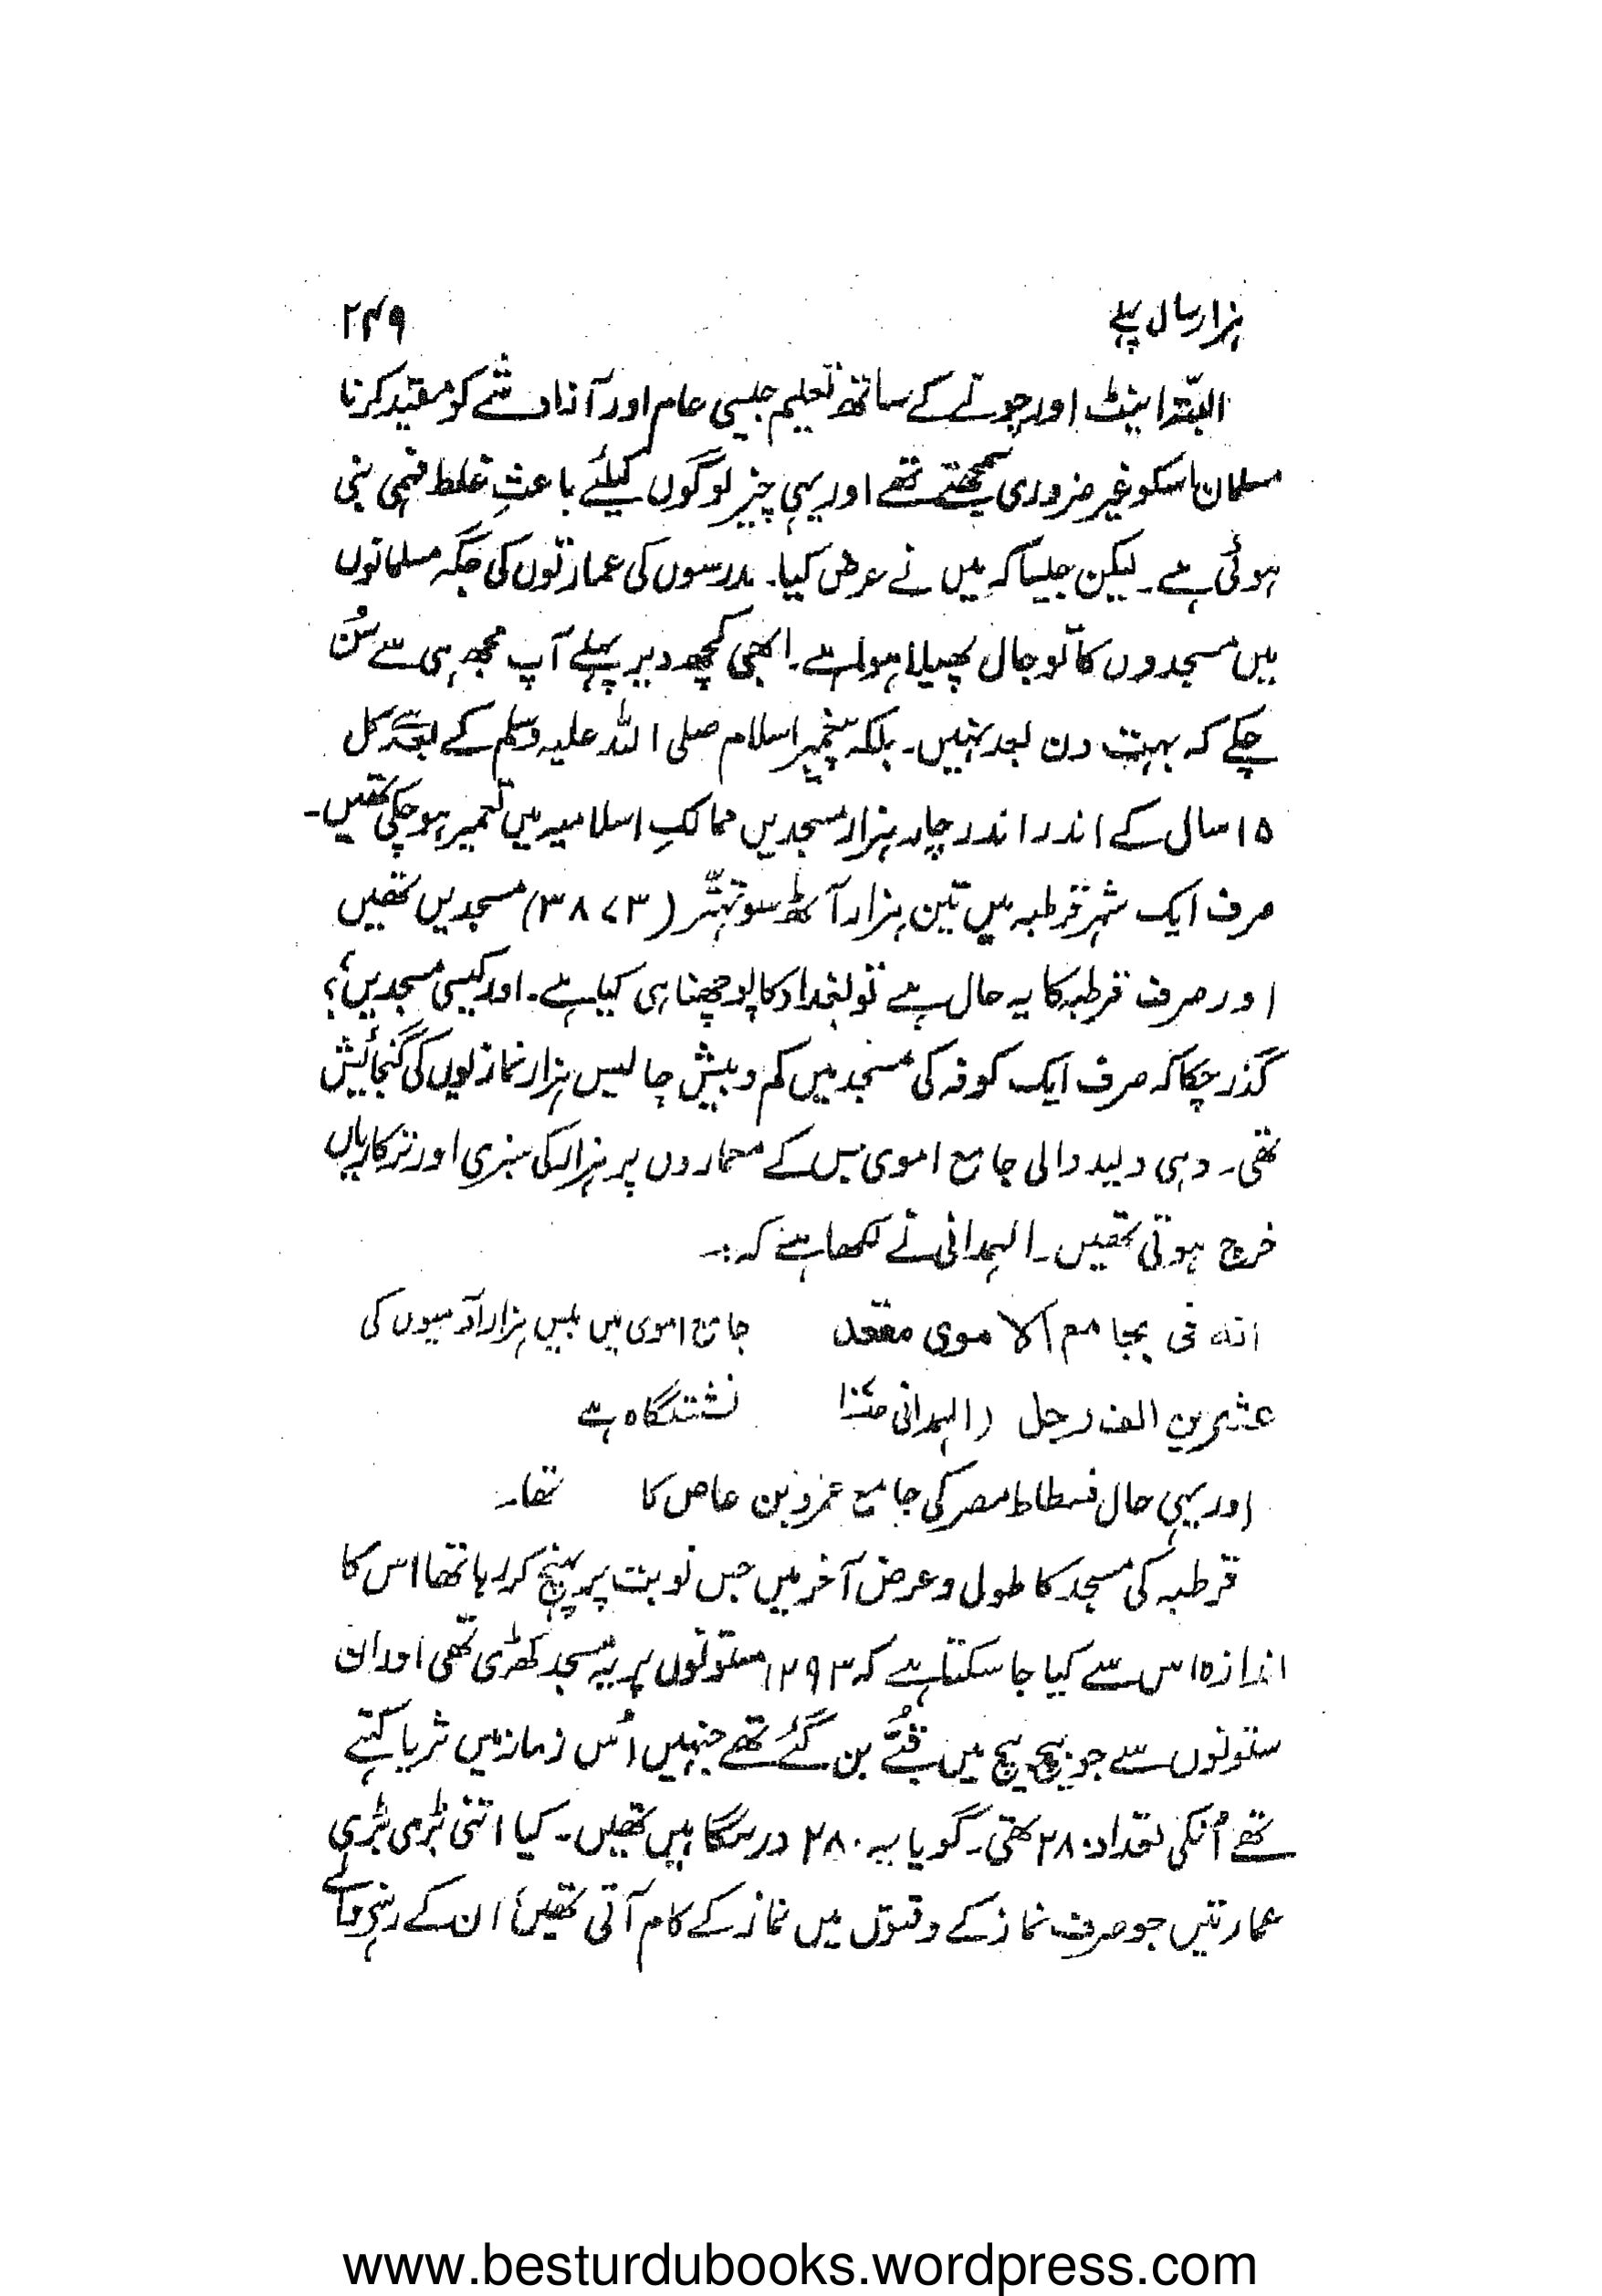 ہزار سال پہلے
۲۴۹
البتّہ اینٹ اور چونے کے ساتھ تعلیم جیسی عام اور آزاد شے کو مقید کرنا
مسلمان اسکو غیر ضروری سمجھتے تھے اور یہی چیز لوگوں کیلئے باعثِ غلط فہمی بنی
ہوئی ہے۔ لیکن جیسا کہ میں نے عرض کیا۔ مدرسوں کی عمارتوں کی جگہ مسلمانوں
میں مسجدوں کا تو جال پھیلا ہوا ہے۔ ابھی کچھ دیر پہلے آپ مجھ ہی سے سُن
چکے کہ بہت دن بعد نہیں۔ بلکہ پیغمبر اسلام صلی اللہ علیہ وسلم کے بعد کل
۱۵ سال کے اندر اندر چار ہزار مسجدیں ممالکِ اسلامیہ میں تعمیر ہو چکی تھیں۔
صرف ایک شہر قرطبہ میں تین ہزار آٹھ سو تہتّر (۳۸۷۳) مسجدیں تھیں
اور صرف قرطبہ کا یہ حال ہے تو بغداد کا پوچھنا ہی کیا ہے۔ اور کیسی مسجدیں؟
گذر چکا کہ صرف ایک کوفہ کی مسجد میں کم و بیش چالیس ہزار نمازیوں کی گنجائیش
تھی۔ وہی ولید والی جامع اموی جس کے معماروں پر ہزار کی سبزی اور ترکاریاں
خرچ ہوتی تھیں۔ الہمدانی نے لکھا ہے کہ:۔
انہ فی بجامع الاموی مقعد
جامع اموی میں بیس ہزار آدمیوں کی
عشرین الف رجل (الہمدانی
نشستگاہ ہے
اور یہی حال فسطاط مصر کی جامع عمرو بن عاص کا تھا۔
قرطبہ کی مسجد کا طول و عرض آخر میں جس نوبت پر پہنچ کر رہا تھا اس کا
اندازہ اس سے کیا جا سکتا ہے کہ ۱۲۹۳ ستونوں پر یہ مسجد کھڑی تھی اور ان
ستونوں سے جو بیچ بیچ میں قُبّے بن گئے تھے جنہیں اُس زمانہ میں ثریا کہتے
تھے اُنکی تعداد ۲۸۰ تھی۔ گویا یہ ۲۸۰ درسگاہیں تھیں۔ کیا اتنی بڑی بڑی
عمارتیں جو صرف نماز کے وقتوں میں نماز کے کام آتی تھیں، ان کے رہتے
www.besturdubooks.wordpress.com